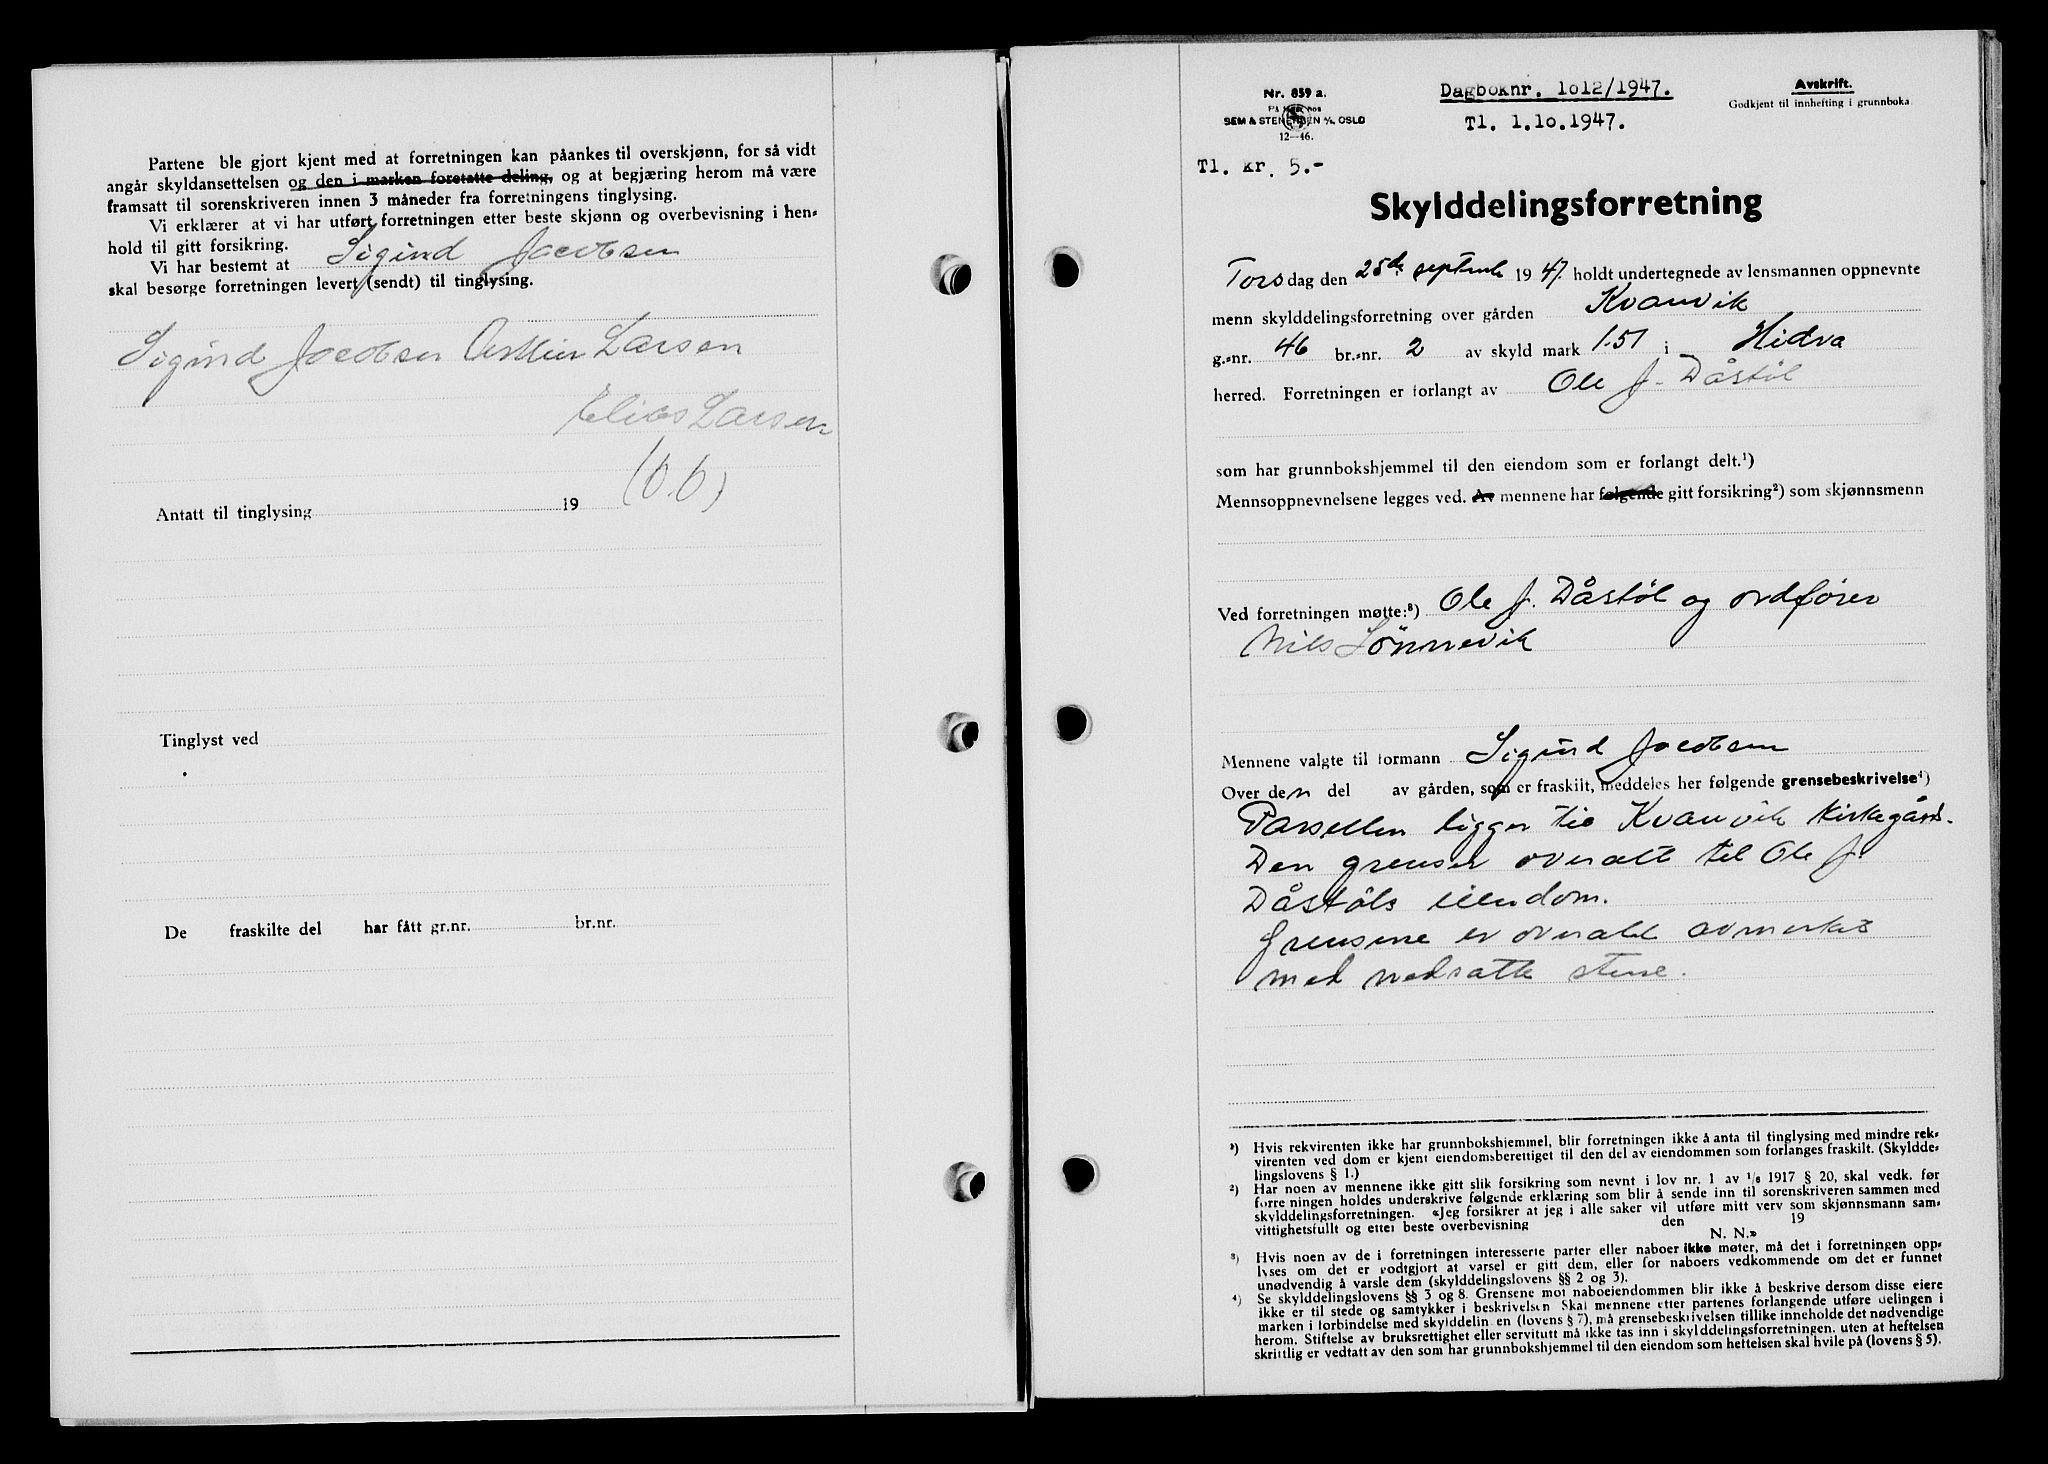 Partene ble gjort kjent med at forretningen kan påankes til overskjønn, for så vidt
angår skyldansettelsen og den i marken foretatte deling, og at begjæring herom må være
framsatt til sorenskriveren innen 3 måneder fra forretningens tinglysing.
Vi erklærer at vi har utført forretningen etter beste skjønn og overbevisning i hen-
hold til gitt forsikring.
Vi har bestemt at Sigurd Jacobsen
skal besørge forretningen levert (sendt) til tinglysing.
Sigurd Jacobsen Larsen
Elias Larsen
Antatt til tinglysing 19
Tinglyst ved
De fraskilte del har fått gr.nr. br.nr.
Nr. 859 a.
SEM & STENERSEN A/S OSLO
12—46.
Dagboknr. 1o12/1947.
Tl. 1.1o.1947.
Avskrift.
Godkjent til innhefting i grunnboka.
Tl. kr. 5.-
Skylddelingsforretning
Torsdag den 25de septembr 1947. holdt undertegnede av lensmannen oppnevnte
menn skylddelingsforretning over gården Kvanvik
g.-nr. 46 br.-nr. 2 av skyld mark 1.51 i Hidra
herred. Forretningen er forlangt av Ole J. Dåstøl
som har grunnbokshjemmel til den eiendom som er forlangt delt.¹)
Mennsoppnevnelsene legges ved. Av mennene har følgende gitt forsikring²) som skjønnsmenn
Ved forretningen møtte:³) Ole J. Dåstøl og ordfører
Nils Lønnevik
Mennene valgte til formann Sigurd Jacobsen
Over den del av gården, som er fraskilt, meddeles her følgende grensebeskrivelse⁴)
Parsellen ligger til Kvanvik kirkegård.
Den grenser overalt til Ole J.
Dåstøls eiendom.
Grensene er overalt avmerket
med nedsatte stene.
¹) Hvis rekvirenten ikke har grunnbokshjemmel, blir forretningen ikke å anta til tinglysing med mindre rek-
virenten ved dom er kjent eiendomsberettiget til den del av eiendommen som forlanges fraskilt. (Skyldde-
lingslovens § 1.)
²) Har noen av mennene ikke gitt slik forsikring som nevnt i lov nr. 1 av 1/6 1917 § 20, skal vedk. før
forretningen holdes underskrive følgende erklæring som blir å sende inn til sorenskriveren sammen med
skylddelingsforretningen. «Jeg forsikrer at jeg i alle saker vil utføre mitt verv som skjønnsmann sam-
vittighetsfullt og etter beste overbevisning den 19
N. N.»
³) Hvis noen av de i forretningen interesserte parter eller naboer ikke møter, må det i forretningen opp-
lyses om det er godtgjort at varsel er gitt dem, eller for naboers vedkommende om det er funnet
unødvendig å varsle dem (skylddelingslovens §§ 2 og 3).
⁴) Se skylddelingslovens §§ 3 og 8. Grensene mot naboeiendommen blir ikke å beskrive dersom disse eiere
ikke er til stede og samtykker i beskrivelsen. Skal mennene etter partenes forlangende utføre delingen i
marken i forbindelse med skylddelingen (lovens § 7), må grensebeskrivelsen tillike inneholde det nødvendige
herom. Stiftelse av bruksrettighet eller servitutt må ikke tas inn i skylddelingsforretningen, uten at heftelsen
skriftlig er vedtatt av den som har grunnbokshjemmel til den eiendom som heftelsen skal hvile på (lovens § 5).